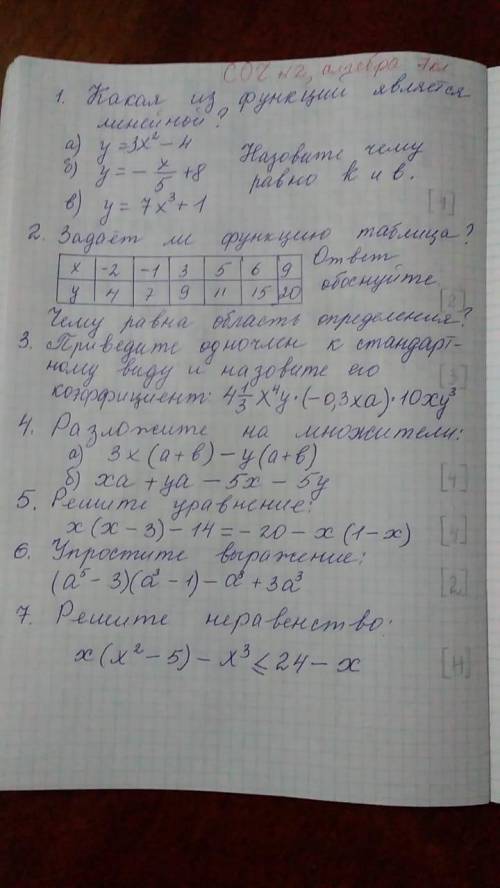 СОЧ №2, алгебра 7кл
1. Какая из функций является
линейной?
а) y = 3x² - 4
б) y = - x/5 + 8 Назовите чему
равно k и в.
в) y = 7x³ + 1 [1]
2. Задаёт ли функцию таблица?
x -2 -1 3 5 6 9 Ответ
y 4 7 9 11 15 20 обоснуйте. [2]
Чему равна область определения?
3. Приведите одночлен к стандарт-
ному виду и назовите его [3]
коэффициент: 4 1/3 x⁴y · (-0,3xa) · 10xy³
4. Разложите на множители:
а) 3x(a+b) - y(a+b)
б) xa + ya - 5x - 5y [4]
5. Решите уравнение:
x(x-3) - 14 = -20 - x(1-x) [4]
6. Упростите выражение:
(a⁵ - 3)(a³ - 1) - a⁸ + 3a³ [2]
7. Решите неравенство:
x(x² - 5) - x³ ≤ 24 - x [4]